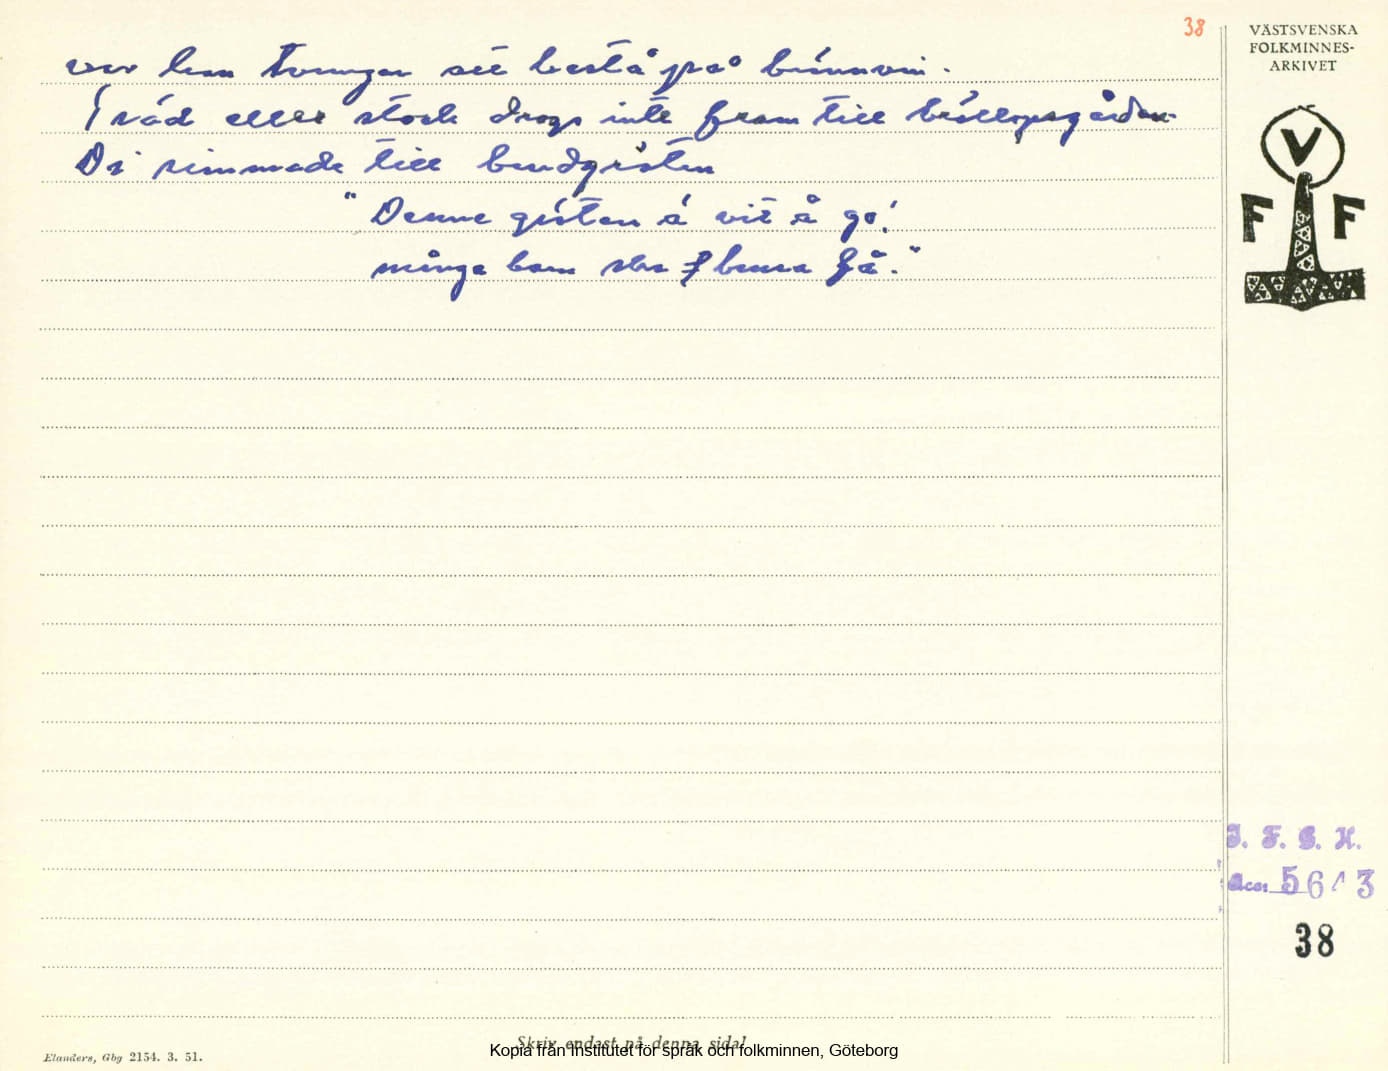 38
VÄSTSVENSKA
FOLKMINNES-
ARKIVET
var han tvungen att bestå på brännvin.
Träd eller stock drogs inte fram till bröllopsgården.
Di rimmade till brudgristen
"Denne gristen ä vit å go!
många barn ska f brura få."
V
F F
I. F. G. H.
Acc. 5643
38
Skriv endast på denna sida!
Kopia från Institutet för språk och folkminnen, Göteborg
Elanders, Gbg 2154. 3. 51.